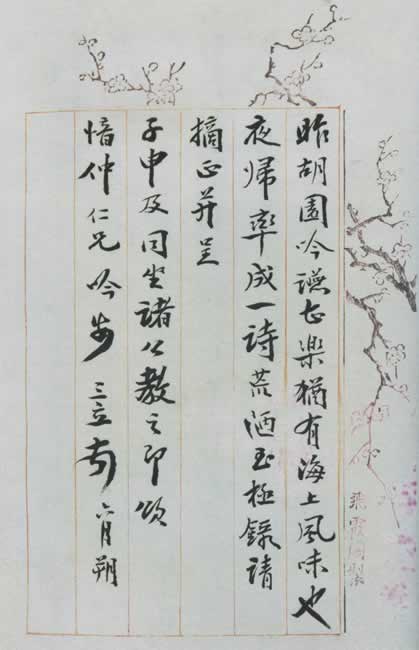 昨胡園吟讌甚樂猶有海上風味也
夜歸率成一詩荒陋至極錄請
摘正并呈
子申及同坐諸公教之即頌
愔仲仁兄吟安 三立頓首 六月朔